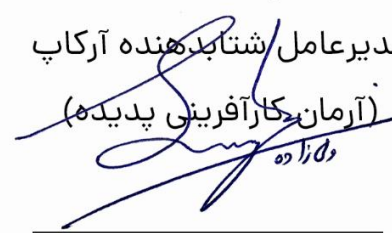 دیرعامل شتابدهنده آرکاپ
(آرمان کارآفرینی پدیده)
ولی زاده